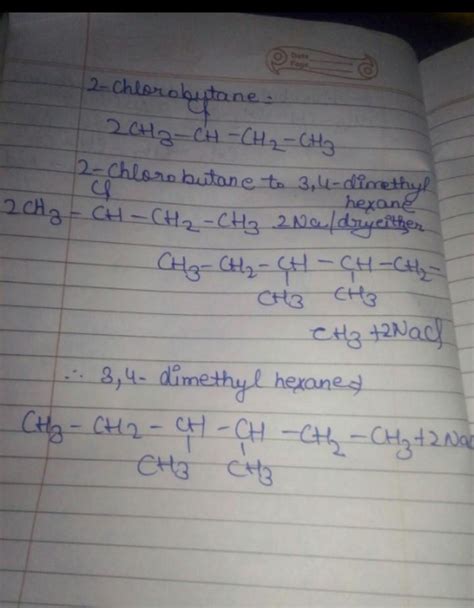 Date
Page
2-Chlorobutane :
Cl
2CH3-CH-CH2-CH3
2-Chlorobutane to 3,4-dimethyl
hexane
Cl
2CH3-CH-CH2-CH3 2Na/dryeither
CH3-CH2-CH-CH-CH2-
CH3 CH3
CH3+2NaCl
∴ 3,4-dimethyl hexane⇒
CH3-CH2-CH-CH-CH2-CH3+2NaC
CH3 CH3